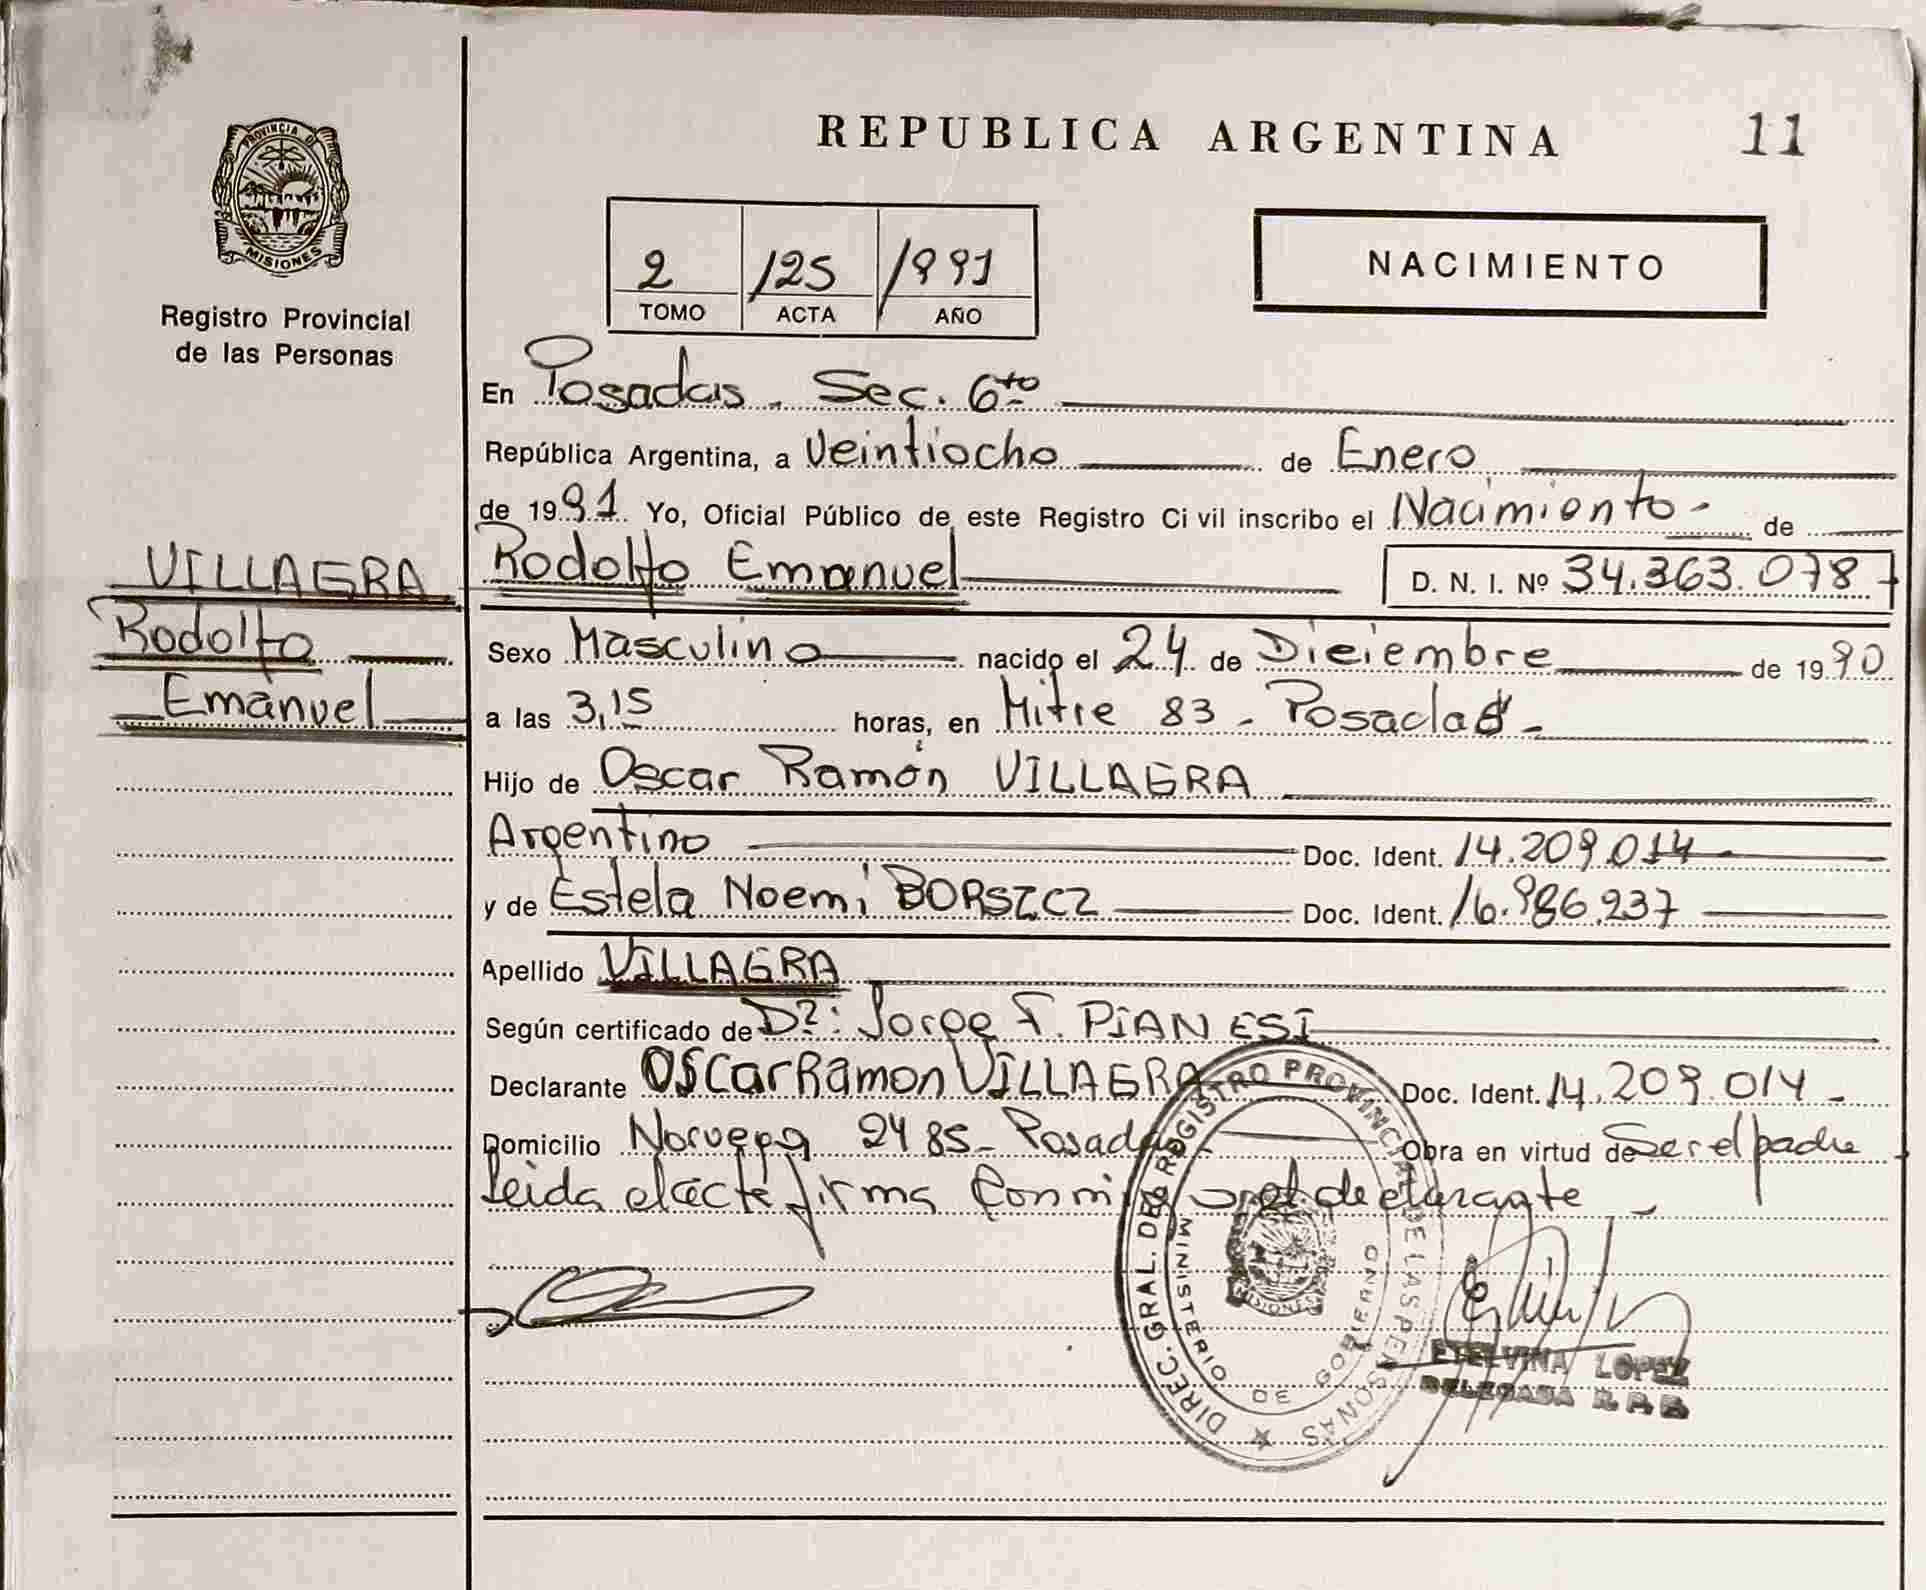 REPUBLICA ARGENTINA
11
PROVINCIA D
MISIONES
Registro Provincial
de las Personas
2 125 1991
TOMO ACTA AÑO
NACIMIENTO
En Posadas - Sec. 6to
República Argentina, a Veintiocho de Enero
de 1991 Yo, Oficial Público de este Registro Civil inscribo el Nacimiento - de
VILLAGRA
Rodolfo
Emanuel
Rodolfo Emanuel D. N. I. Nº 34.363.078
Sexo Masculino nacido el 24 de Dieiembre de 1990
a las 3,15 horas, en Mitre 83 - Posadas -
Hijo de Oscar Ramón VILLAGRA
Argentino Doc. Ident. 14.209.014
y de Estela Noemi BORSZCZ Doc. Ident. 16.986.237
Apellido VILLAGRA
Según certificado de Dr: Jorge F. PIANESI
Declarante OSCar Ramon VILLAGRA Doc. Ident. 14.209.014 -
Domicilio Noruega 2485 - Posadas Obra en virtud de Ser el padre
Leida el acta firma Conmigo el declarante -
DIREC. GRAL. DEL REGISTRO PROVINCIAL DE LAS PERSONAS
MINISTERIO DE GOBIERNO
MISIONES
ETELVINA LOPEZ
DELEGADA R. P. P.